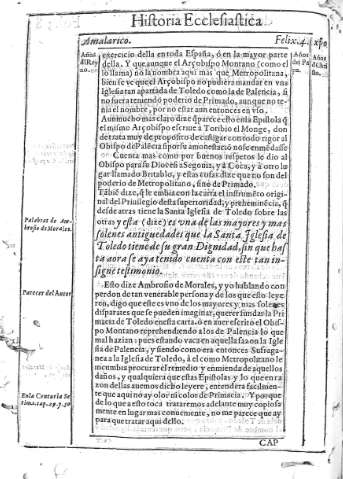 Historia Ecclesiastica
Amalarico.
Felix.4.
exercicio della en toda España, ó en la mayor parte
della. Y que aunque el Arçobispo Montano (como el
lo llama) no la nombra aqui mas que Metropolitana,
bien se ve que el Arçobispo no pudiera mandar en vna
Iglesia tan apartada de Toledo como la de Palencia, si
no fuera teniendo poderio de Primado, aunque no te-
nia el nombre, por no estar aun entonces en vso.
Aun mucho mas claro dize q̃ parece esto en la Epistola q̃
el mismo Arçobispo escriue a Toribio el Monge, don
de trata muy de proposito de castigar con todo rigor al
Obispo de Palẽcia si por su amonestaciõ no se emẽdasse
Cuenta mas como por buenos respetos le dio al
Obispo para su Diocesi a Segouia, y a Coca, y a otro lu
gar llamado Britablo, y estas cosas dize que no son del
poderio de Metropolitano, sino de Primado.
Tãbiẽ dize, q̃ le embia con la carta el instrumẽto origi-
nal del Priuilegio desta superioridad, y prehemin̄ecia, q̃
desde atras tiene la Santa Iglesia de Toledo sobre las
otras y esta (dize) es vna de las mayores y mas
solenes antiguedades que la Santa Iglesia de
Toledo tiene de su gran Dignidad, sin que has
ta aora se aya tenido cuenta con este tan in-
signe testimonio.
Palabras de Am-
brosio de Morales.
Esto dize Ambrosio de Morales, y yo hablando con
perdon de tan venerable persona y de los que esto leye
ren, digo que este es vno de los mayores y mas solenes
disparates que se pueden imaginar, querer fundar la Pri
macia de Toledo en esta carta, ó en auer escrito el Obis-
po Montano reprehendiendo a los de Palencia lo que
mal hazian: pues estando vaca en aquella sazon la Igle
sia de Palencia, y siendo como era entonces Sufraga-
nea a la Iglesia de Toledo, á el como Metropolitano le
incumbia procurar el remedio y enmienda de aquellos
daños, y qualquiera que estas Epistolas y lo que en ra
zon dellas auemos dicho leyere, entenderá facilmen-
te que aqui no ay olor ni color de Primacia. Y porque
de lo que a esto toca trataremos adelante muy copiosa
mente en lugar mas conueniente, no me parece que ay
para que tratar aqui dello.
Parecer del Autor
En la Centuria Se
CAP